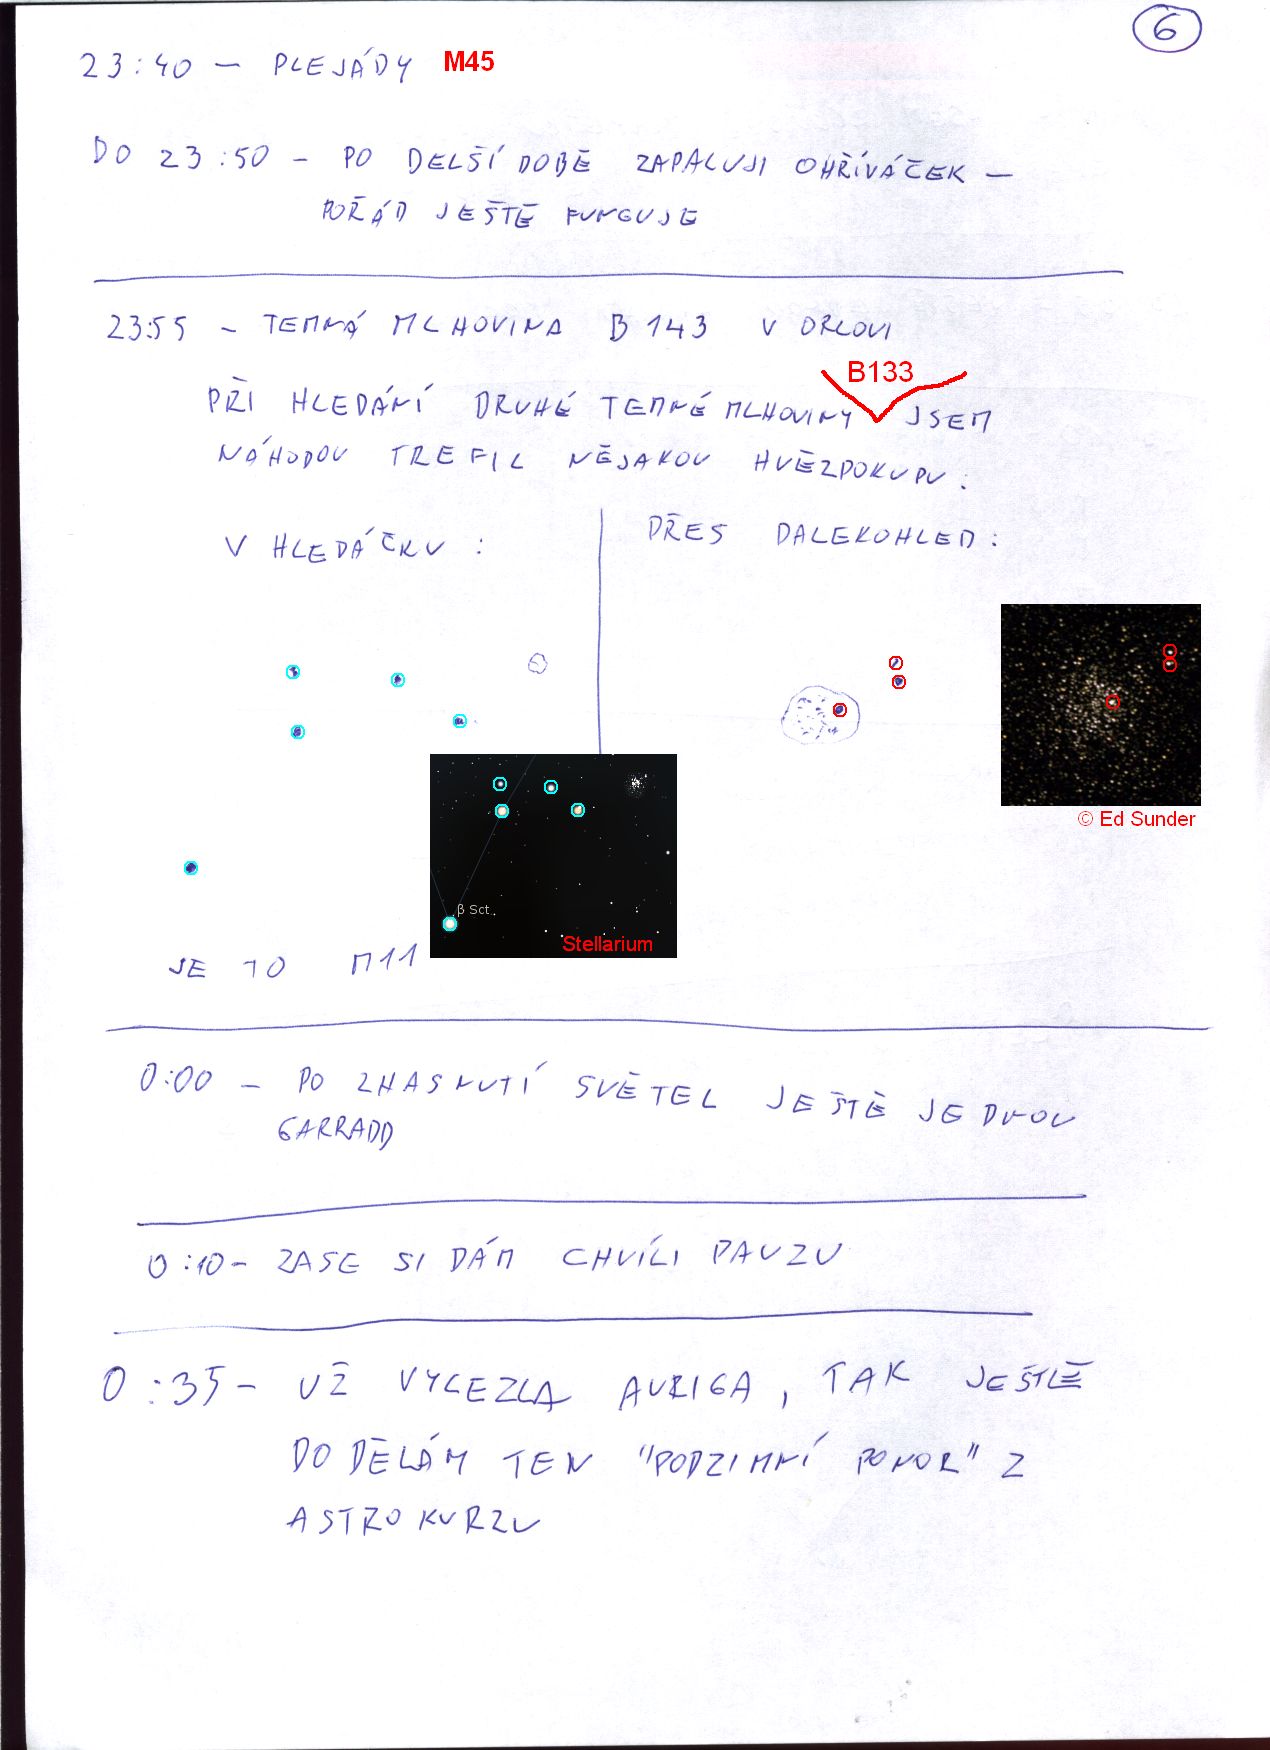 6
23:40 – PLEJÁDY M45
DO 23:50 – PO DELŠÍ DOBĚ ZAPALUJI OHŘÍVÁČEK –
POŘÁD JEŠTĚ FUNGUJE
23:55 – TEMNÁ MLHOVINA B 143 V ORLOVI
B133
PŘI HLEDÁNÍ DRUHÉ TEMNÉ MLHOVINY JSEM
NÁHODOU TREFIL NĚJAKOU HVĚZDOKUPU:
V HLEDÁČKU:
PŘES DALEKOHLED:
© Ed Sunder
β Sct
Stellarium
JE TO M11
0:00 – PO ZHASNUTÍ SVĚTEL JEŠTĚ JEDNOU
GARRADD
0:10 – ZASE SI DÁM CHVÍLI PAUZU
0:35 – UŽ VYLEZLA AURIGA, TAK JEŠTĚ
DODĚLÁM TEN "PODZIMNÍ PONOR" Z
ASTROKURZU